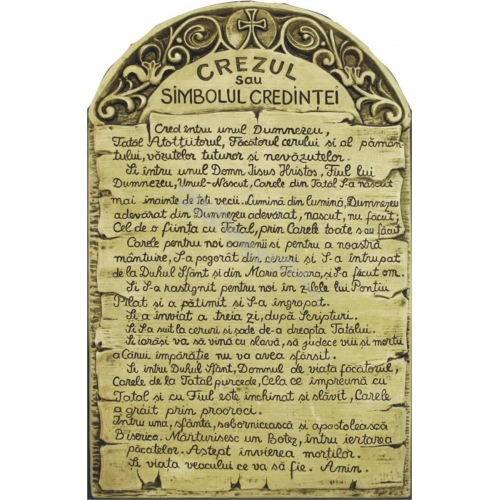 CREZUL
sau
SIMBOLUL CREDINȚEI
Cred întru unul Dumnezeu,
Tatăl Atotțiitorul, Făcătorul cerului și al pămân
tului, văzutelor tuturor și nevăzutelor.
Și întru unul Domn Iisus Hristos, Fiul lui
Dumnezeu, Unul-Născut, Carele din Tatăl S-a născut
mai înainte de toți vecii. Lumină din lumină, Dumnezeu
adevărat din Dumnezeu adevărat, născut, nu făcut;
Cel de o ființă cu Tatăl, prin Carele toate s-au făcut
Carele pentru noi oamenii și pentru a noastră
mântuire, S-a pogorât din ceruri și S-a întrupat
de la Duhul Sfânt și din Maria Fecioara, și S-a făcut om.
Și S-a răstignit pentru noi în zilele lui Ponțiu
Pilat și a pătimit și S-a îngropat.
Și a înviat a treia zi, după Scripturi.
Și S-a suit la ceruri și șade de-a dreapta Tatălui.
Și iarăși va să vină cu slavă, să judece viii și morții
a Cărui împărăție nu va avea sfârșit.
Și întru Duhul Sfânt, Domnul de viață făcătorul,
Carele de la Tatăl purcede, Cela ce împreună cu
Tatăl și cu Fiul este închinat și slăvit, Carele
a grăit prin prooroci.
Întru una, sfântă, sobornicească și apostolească
Biserică. Mărturisesc un Botez, întru iertarea
păcatelor. Aștept învierea morților.
Și viața veacului ce va să fie. Amin.